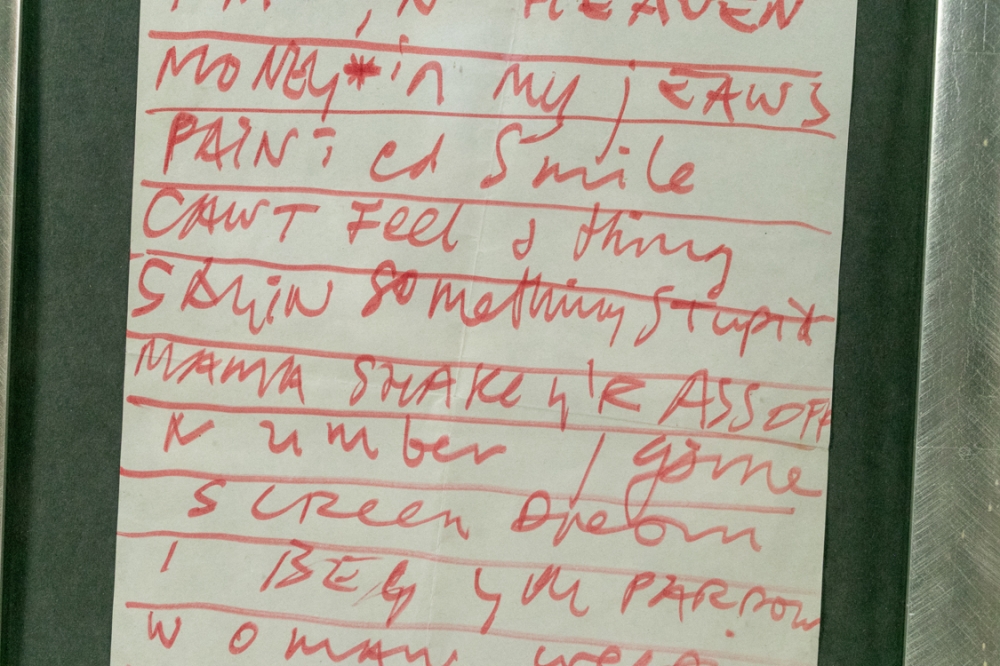 I'M IN HEAVEN
MONEY in my jEANS
PAINTed Smile
CAN'T Feel a thing
SAyiN something STupid
MAMA SHAKE y'R ASS OFF
Number 1 game
SCReen Dream
I BEG yOUR PARDON
woman